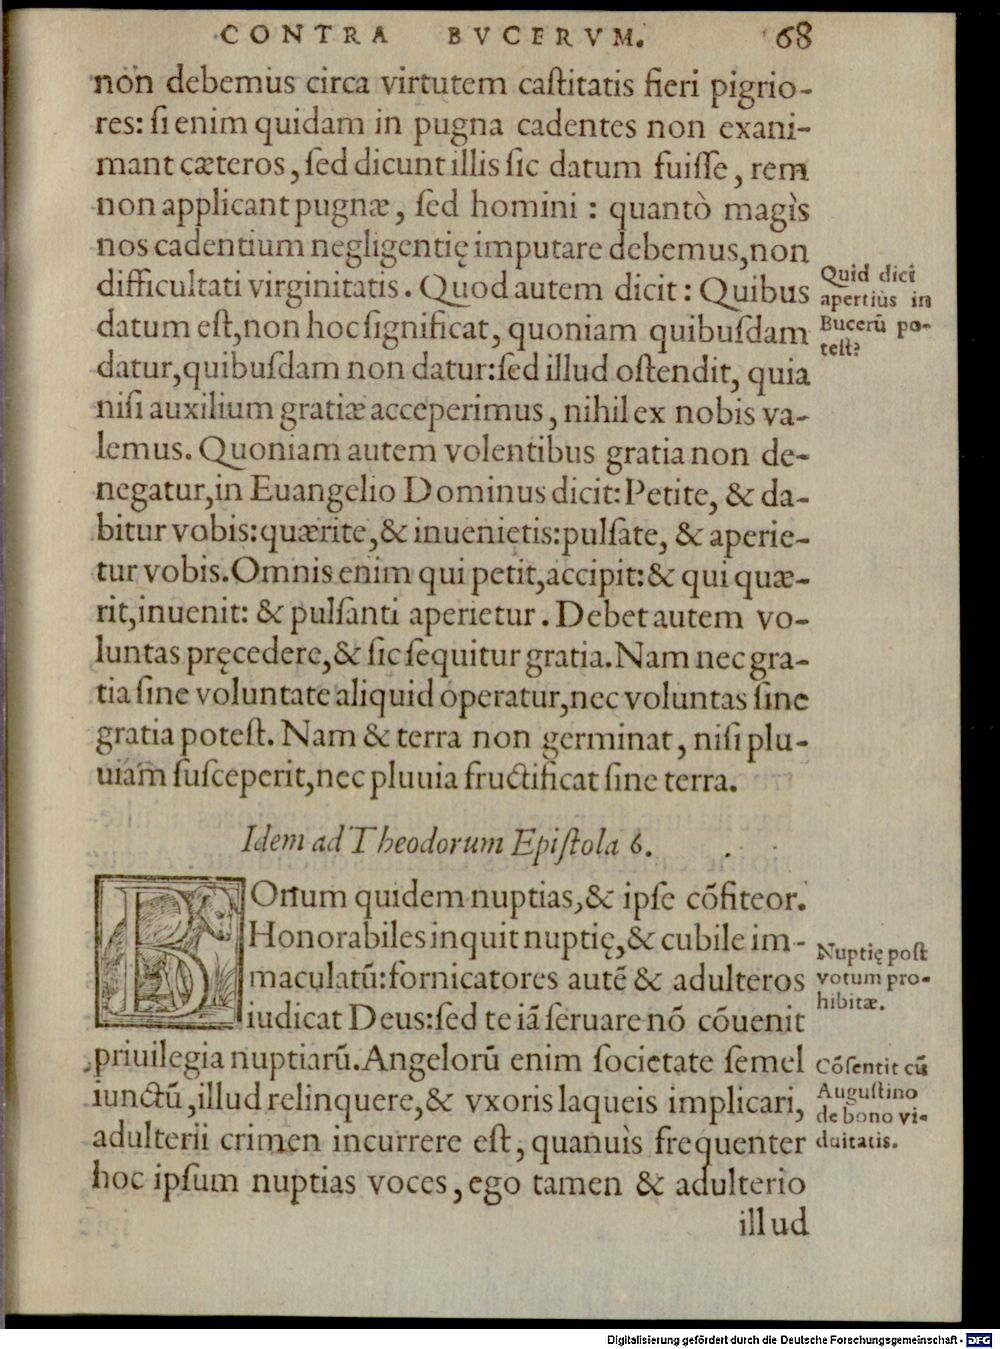 CONTRA BVCERVM. 68
non debemus circa virtutem caſtitatis fieri pigrio-
res: ſi enim quidam in pugna cadentes non exani-
mant cæteros, ſed dicunt illis ſic datum fuiſſe, rem
non applicant pugnæ, ſed homini : quantò magìs
nos cadentium negligentię imputare debemus, non
difficultati virginitatis. Quod autem dicit: Quibus
datum eſt, non hoc ſignificat, quoniam quibuſdam
datur, quibuſdam non datur: ſed illud oſtendit, quia
niſi auxilium gratiæ acceperimus, nihil ex nobis va-
lemus. Quoniam autem volentibus gratia non de-
negatur, in Euangelio Dominus dicit: Petite, & da-
bitur vobis: quærite, & inuenietis: pulſate, & aperie-
tur vobis. Omnis enim qui petit, accipit: & qui quæ-
rit, inuenit: & pulſanti aperietur. Debet autem vo-
luntas pręcedere, & ſic ſequitur gratia. Nam nec gra-
tia ſine voluntate aliquid operatur, nec voluntas ſine
gratia poteſt. Nam & terra non germinat, niſi plu-
uiam ſuſceperit, nec pluuia fructificat ſine terra.
Quid dici
apertiùs in
Bucerū po-
teſt?
Idem ad Theodorum Epiſtola 6.
BOnum quidem nuptias, & ipſe cōfiteor.
Honorabiles inquit nuptię, & cubile im-
maculatū: fornicatores autē & adulteros
iudicat Deus: ſed te iā ſeruare nō cōuenit
priuilegia nuptiarū. Angelorū enim ſocietate ſemel
iunctū, illud relinquere, & vxoris laqueis implicari,
adulterii crimen incurrere eſt, quanuìs frequenter
hoc ipſum nuptias voces, ego tamen & adulterio
illud
Nuptię poſt
votum pro-
hibitæ.
Cōſentit cū
Auguſtino
de bono vi-
duitatis.
Digitalisierung gefördert durch die Deutsche Forschungsgemeinschaft - DFG